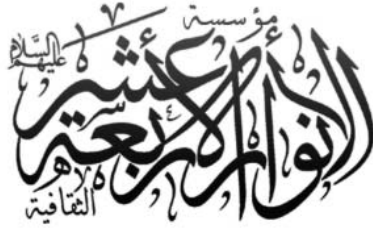 مؤسسة
الأنوار الأربعة عشر
عليهم السلام
الثقافية